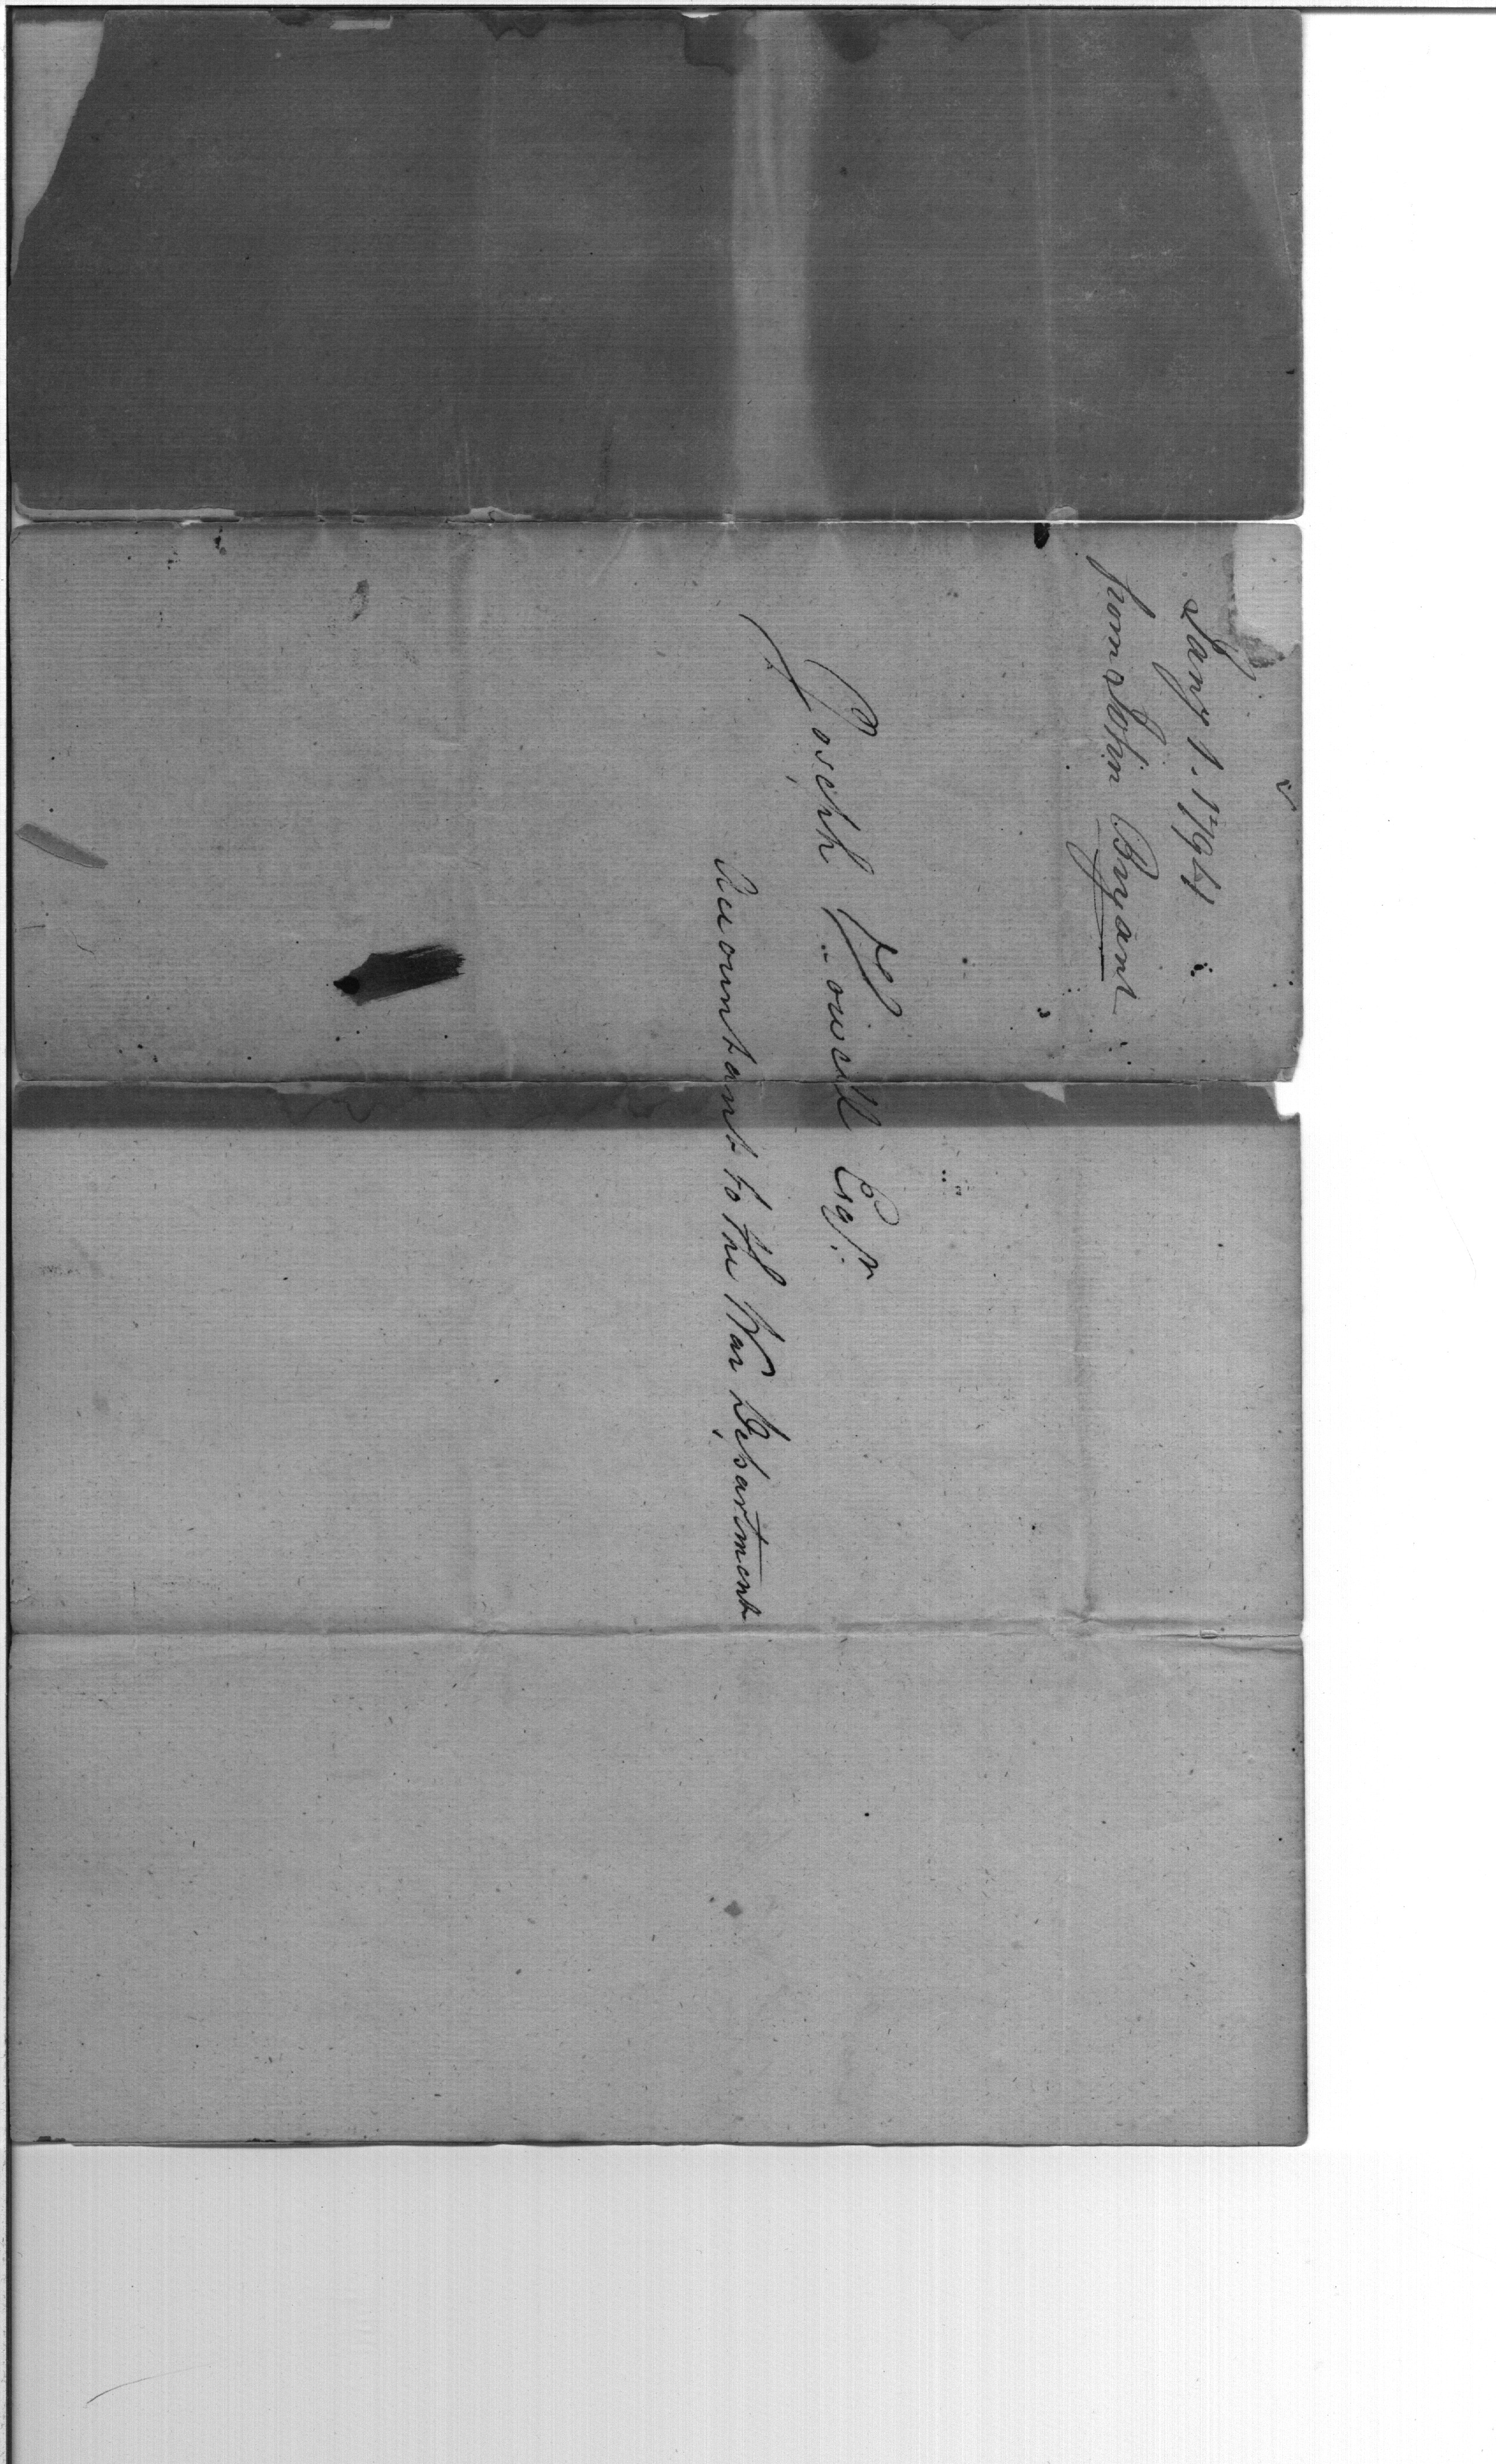 Jany 1. 1794
from John Bryant
Joseph Howell Esqr.
Accountant to the War Department